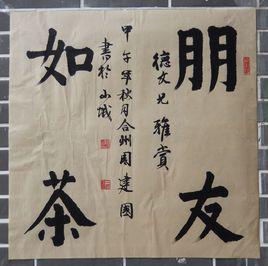 朋友
德文兄雅賞
甲午年秋月合州周建國
書於山城
如茶